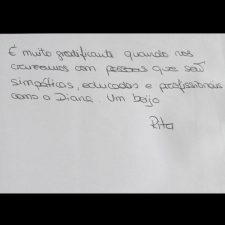 É muito gratificante quando nos
cruzamos com pessoas que são
simpáticas, educadas e profissionais
como a Diana. Um beijo
Rita